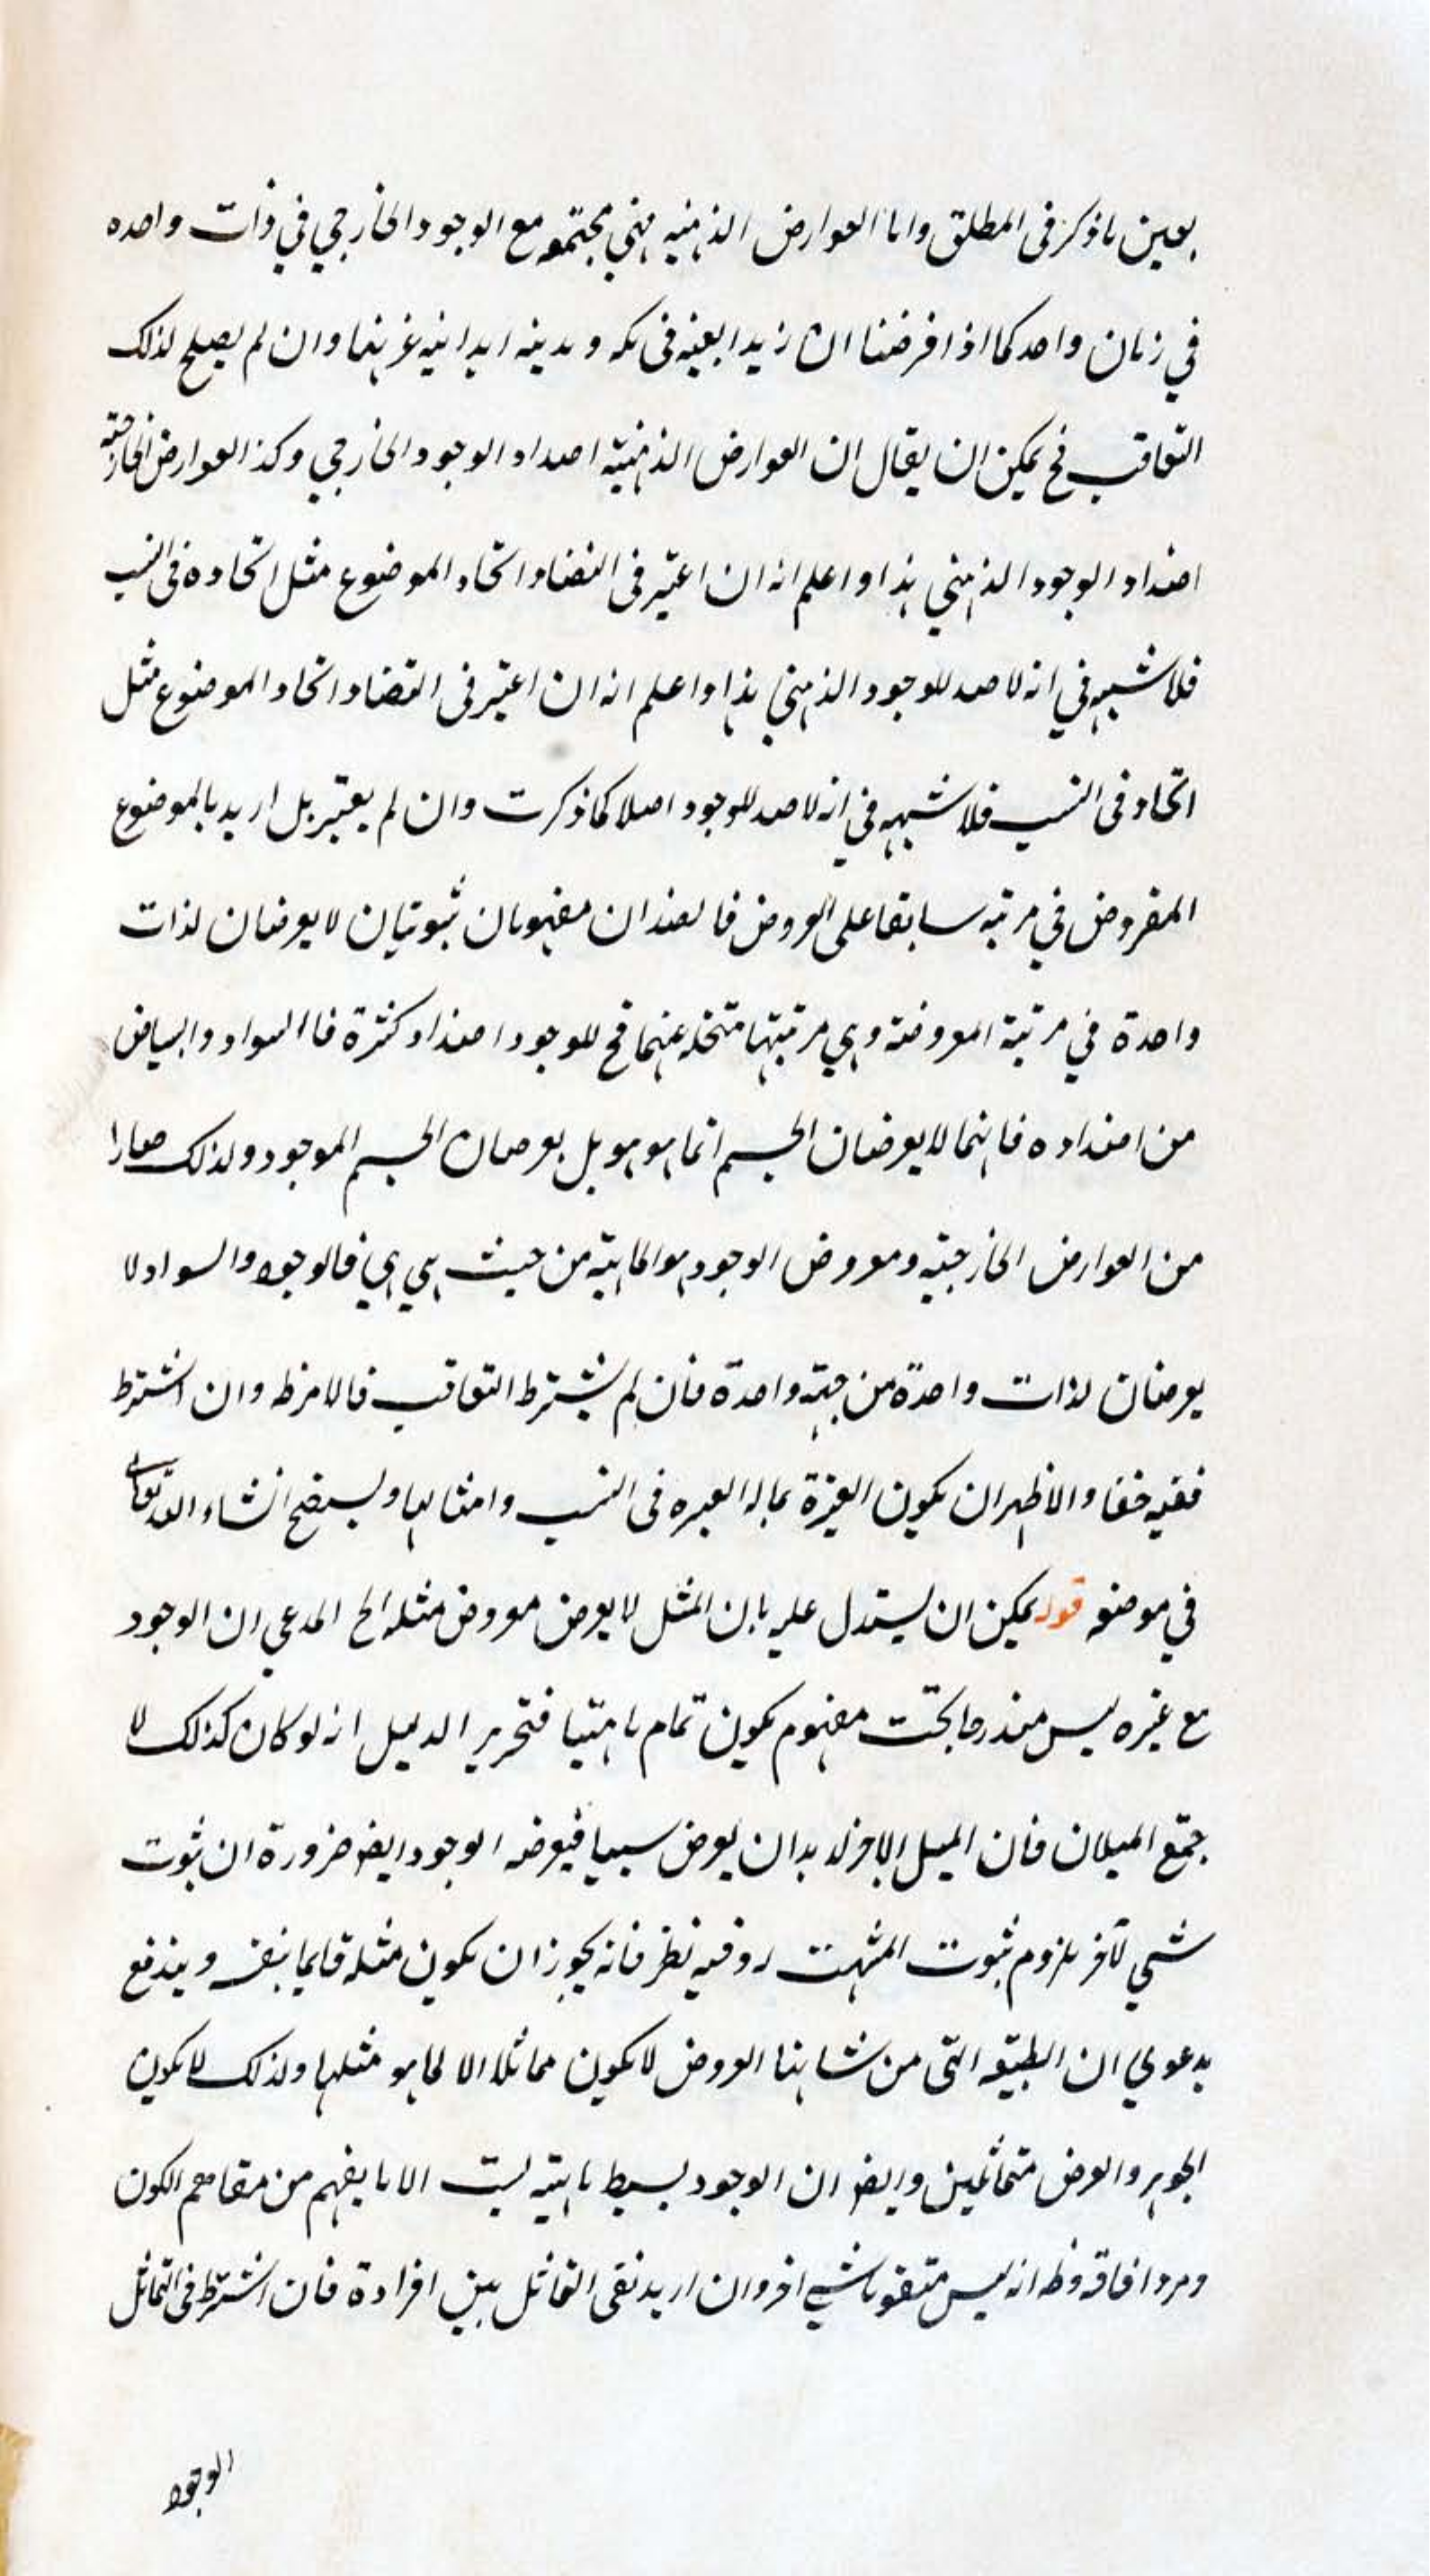 بعين ما ذكر فى المطلق واما العوارض الذهنيه فهي مجتمعه مع الوجود الخارجي في ذات واحده
في زمان واحد كما اذا فرضنا ان زيدا بعينه فى مكه و مدينه وان لم يصلح لذلك
التعاقب فح يمكن ان يقال ان العوارض الذهنيته اضداد الوجود الخارجي وكذا العوارض الخارجيته
اضداد الوجود الذهني هذا واعلم انه ان اعتبر فى التضاد اتحاد الموضوع مثل اتحاده فى النسب
فلا شبهه في انه لا ضد للوجود الذهني هذا واعلم انه ان اعتبر فى التضاد اتحاد الموضوع مثل
اتحاد فى النسب فلا شبهه في انه لا ضد للوجود اصلا كما ذكرت وان لم يعتبر بل اريد بالموضوع
المفروض في مرتبه سابقا على العروض فالضدان مفهومان ثبوتيان لا يعرضان لذات
واحدة في مرتبة المعروضته وهي مرتبتها متخله عنهما فح للوجود اضداد كثرة فاالسواد والبياض
من اضداده فانهما لا يعرضان الجسم انما هو هو بل يعرضان الجسم الموجود ولذلك صارا
من العوارض الخارجيته ومعروض الوجود هو الماهيته من حيث هي هي فالوجود والسواد لا
يعرضان لذات واحدة من جهته واحدة فان لم يشترط التعاقب فالامر ظ وان اشترط
ففيه خفا والاظهر ان يكون العبرة بما له العبره فى النسب وامثالها وليتضح انشاء الله تعالى
في موضعه قوله يمكن ان يستدل عليه بان المثل لا يعرض معروض مثله الخ المدعي ان الوجود
مع غيره ليس مندرجا تحت مفهوم يكون تمام ماهيتها فتحرير الدليل انه لو كان كذلك لا
جتمع المثلان فان المثل الاخر لا بد ان يعرض شيا فيعرضه الوجود ايضا ضرورة ان ثبوت
شي لآخر ملزوم ثبوت المثبت له وفيه نظر فانه يجوز ان يكون مثله قايما بنفسه ويندفع
بدعوي ان الطبيعه التى من شانها العروض لا يكون مماثلا الا لما هو مثلها ولذلك لا يكون
الجوهر والعرض متماثلين وايضا ان الوجود بسيط ماهيته ليست الا ما يفهم من الكون
ومرادفاته وظ انه ليس متقوما شي اخر وان اريد نفى التماثل بين افراده فان اشترط فى التماثل
الوجود